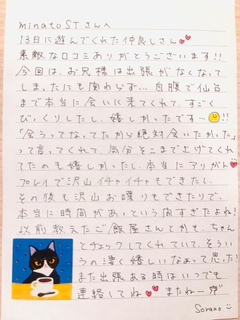 minato STさんへ
13日に遊んでくれた仲良しさん
素敵な口コミありがとうございます!!
今回は、お兄様は出張がなくなって
しまったにも関わらず… 自腹で仙台
まで本当に会いに来てくれて、すごく
びっくりしたし、嬉しかったです〜!!
「会うってなってたから絶対会いたかった」
って言ってくれて、気分をここまで上げてくれ
てたのも嬉しかったし、本当にアリがとう
プレイで沢山イチャイチャもできたし、
その後も沢山お喋りもできたりで、
本当に時間があっという間すぎたよね!
以前教えたご飯屋さんとかも、ちゃん
とチェックしてくれていて、そうい
うの凄く嬉しいなぁって思った!
また出張ある時はいつでも
連絡してね またねー
Sorano